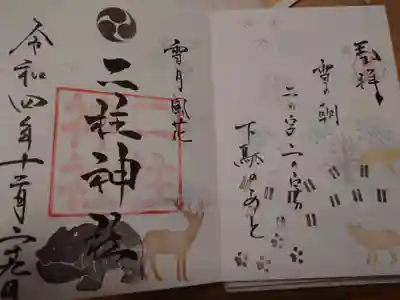 奉拝
雪の朝
二の字二の字
下駄のあと
雪月風花
二柱神社
令和四年十二月 日